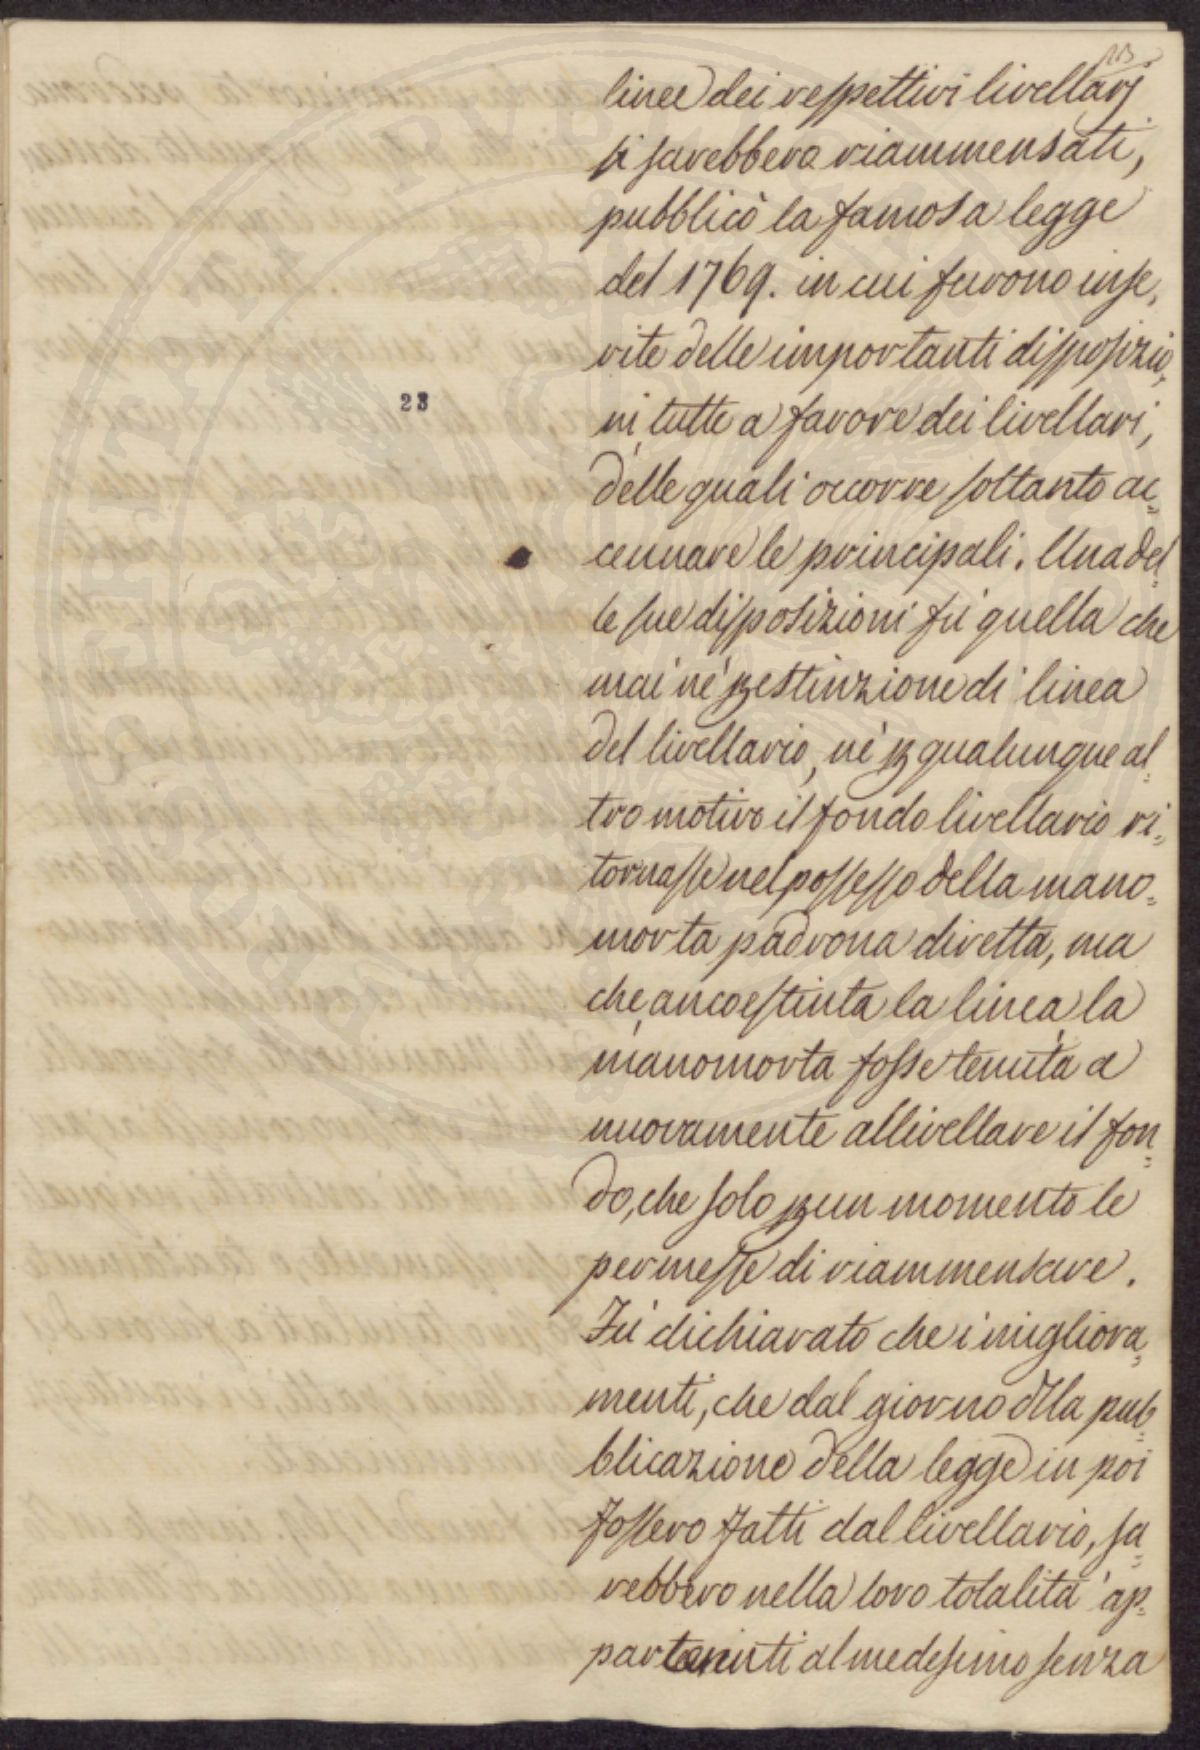 23
linee dei respettivi livellarj
si sarebbero riammensati,
pubblicò la famosa legge
del 1769. in cui furono inse,
rite delle importanti disposizio,
23
ni tutte a favore dei livellari,
delle quali occorre soltanto ac=
cennare le principali. Una del=
le sue disposizioni fù quella che
mai nè p estinzione di linea
del livellario, nè p qualunque al=
tro motivo il fondo livellario ri=
tornasse nel possesso della mano=
morta padrona diretta, ma
che, anco estinta la linea, la
manomorta fosse tenuta a
nuovamente allivellare il fon=
do, che solo p un momento le
permesse di riammensare.
Fù dichiarato che i migliora=
menti, che dal giorno dlla pub=
blicazione della legge in poi
fossero fatti dal livellario, sa=
rebbero nella loro totalità ap=
partenuti al medesimo senza